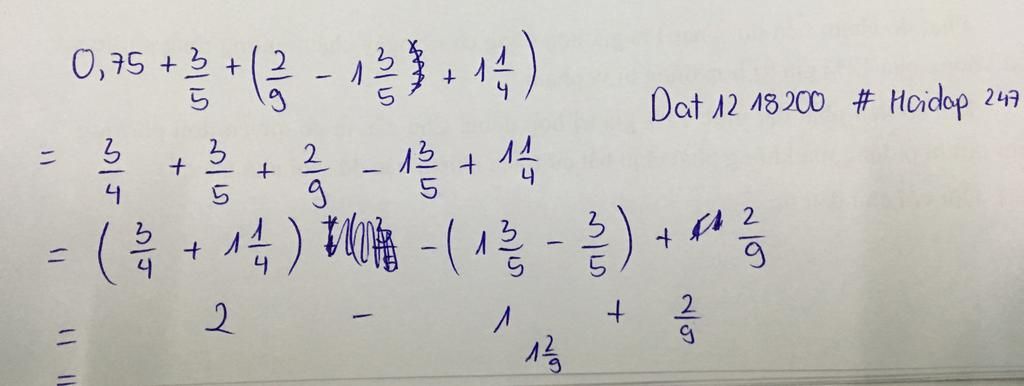 0,75 + 3/5 + (2/9 - 1 3/5 + 1 1/4)
Dat 12 18200 # Hoidap 247
= 3/4 + 3/5 + 2/9 - 1 3/5 + 1 1/4
= (3/4 + 1 1/4) - (1 3/5 - 3/5) + 2/9
= 2 - 1 + 2/9
= 1 2/9